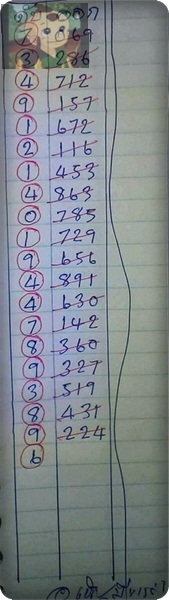 7 069
3 286
4 712
9 157
1 672
2 116
1 453
4 863
0 785
1 729
9 656
4 891
4 630
7 142
8 360
9 327
3 519
8 431
9 224
6